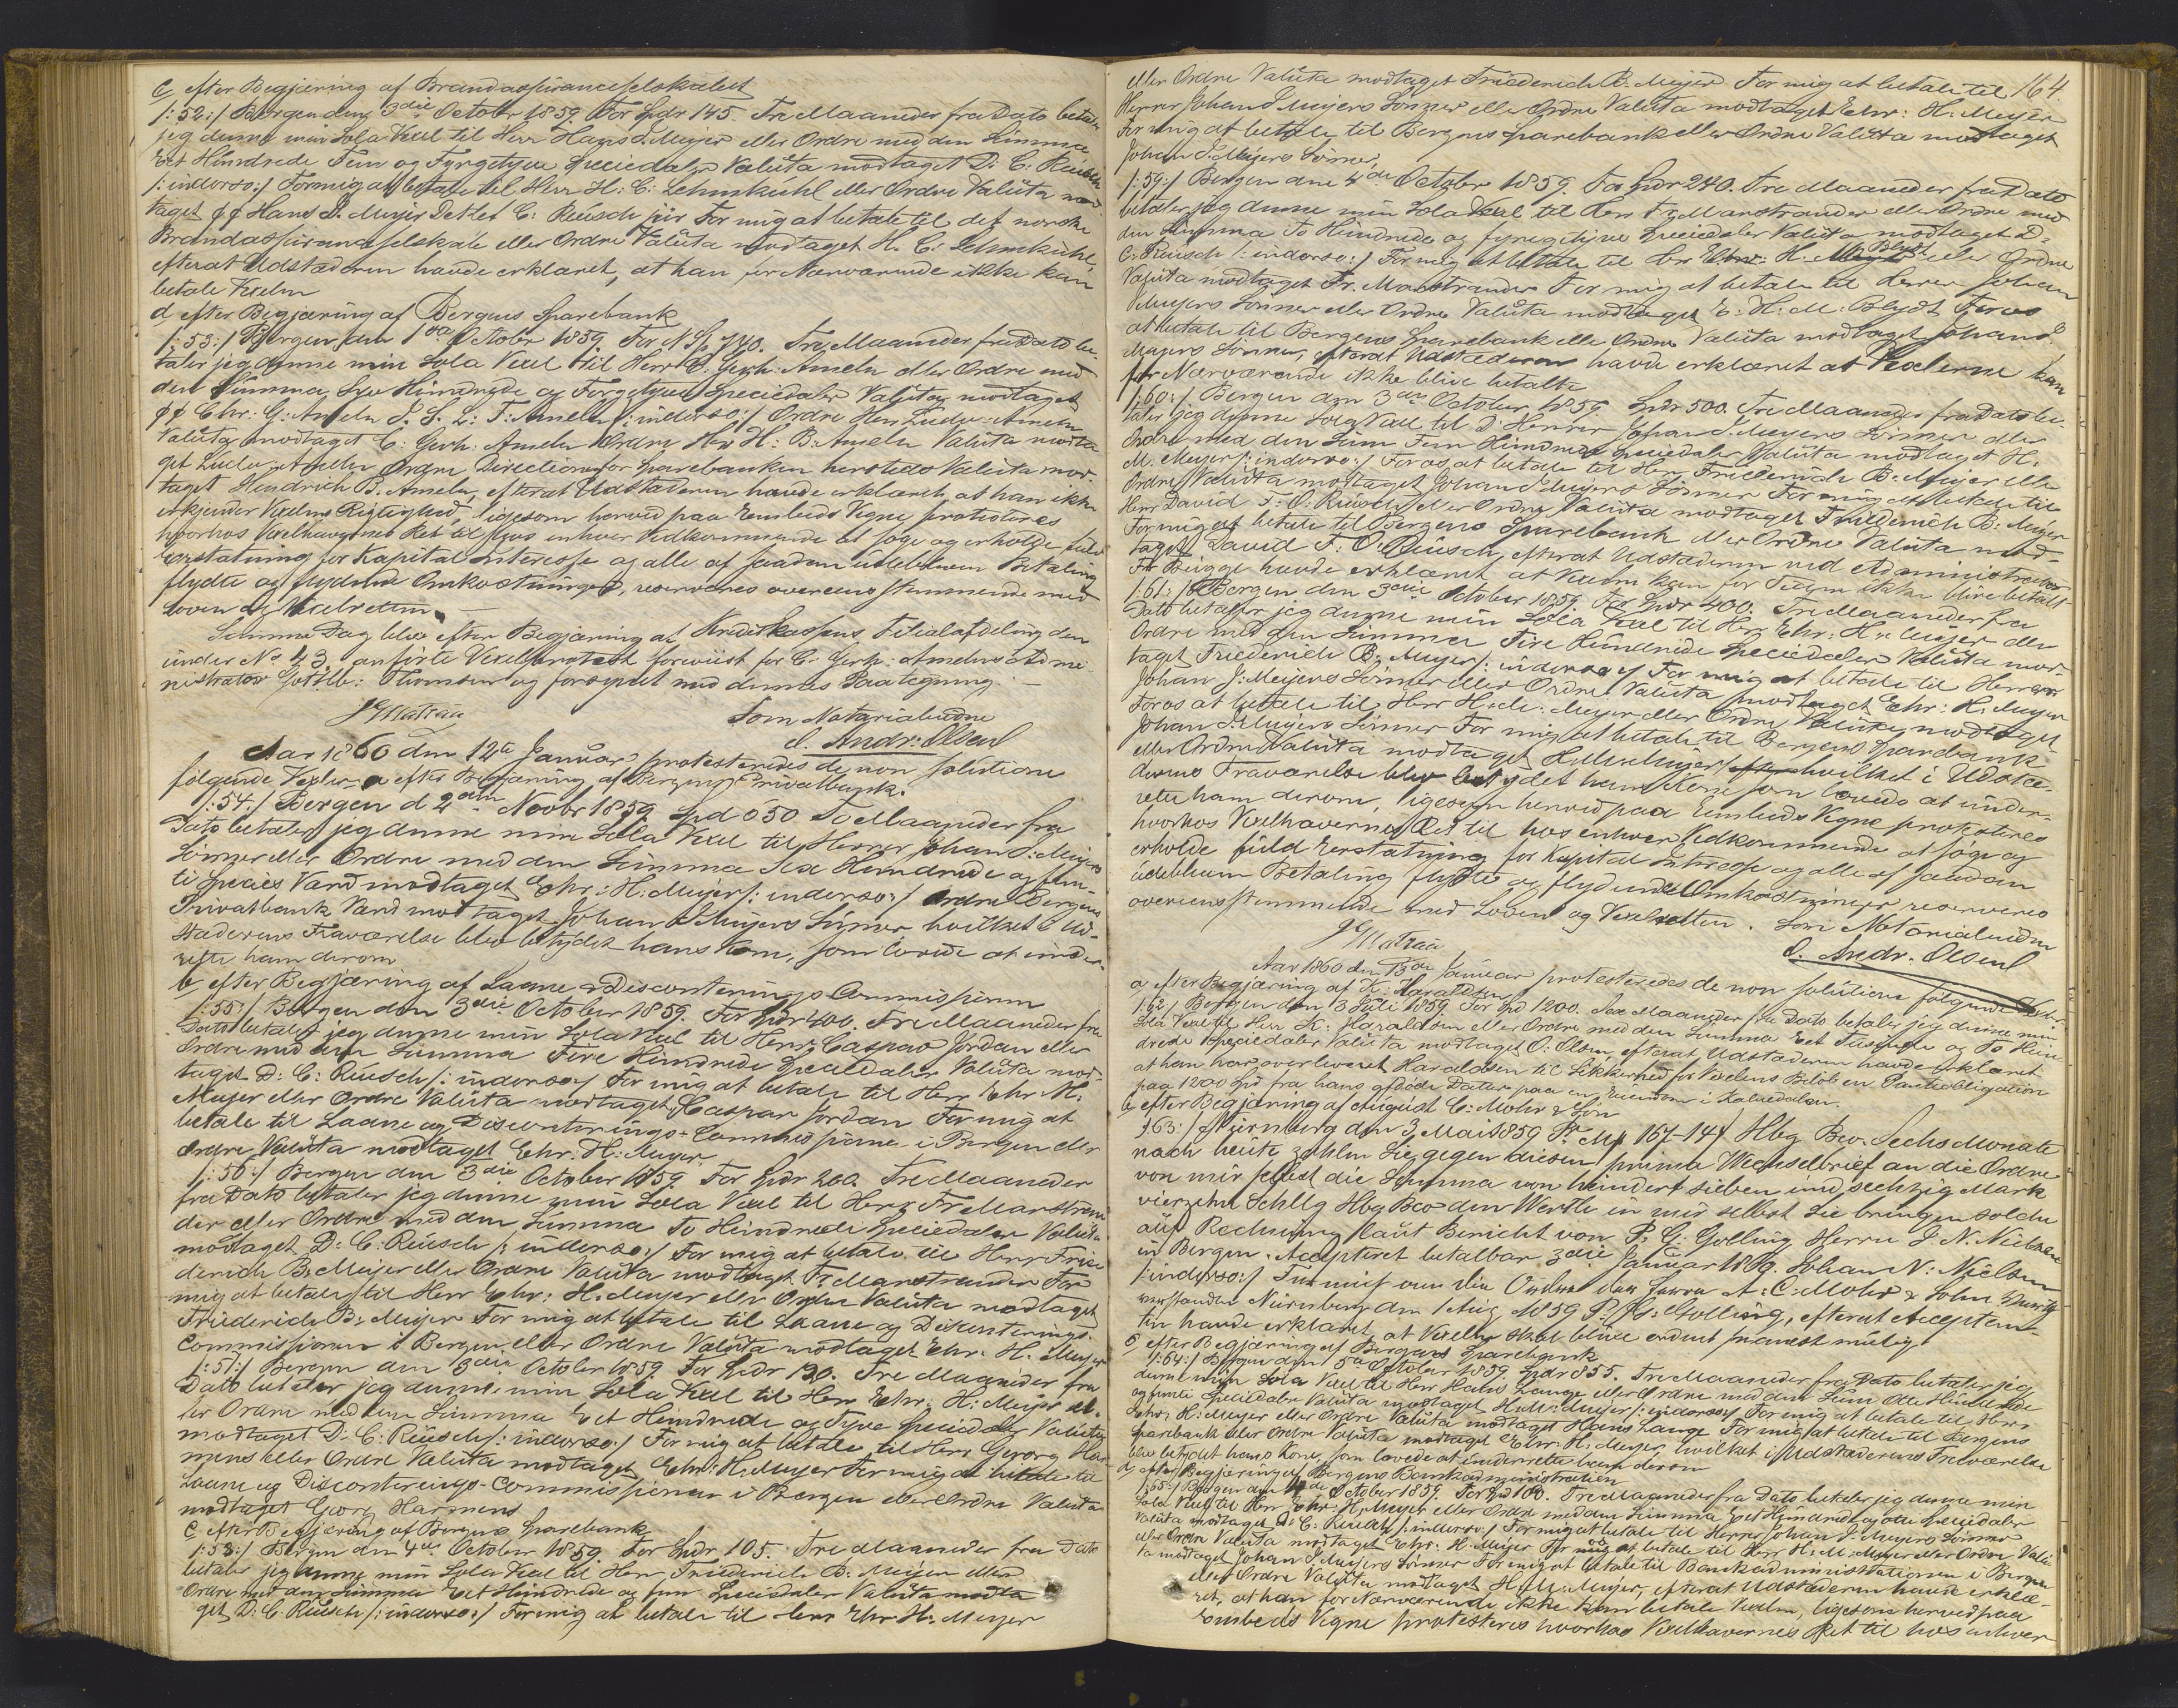 c, efter Begjæring af Brandassuranceselskabet
/:52:/ Bergen den 3die October 1859. For Spdr 145. Tre Maaneder fra Dato betaler
jeg denne min Sola Vexel til Herr Hans D. Meyer eller Ordre med den Summa
Et Hundrede Fem og Fyrgetyve Speciedaler Valuta modtaget D: C: Reusch
/:indorso:/ For mig at betale til Herr H: C: Lehmkuhl eller Ordre Valuta mod-
taget pp Hans D. Meyer Detlef C: Reusch jun For mig at betale til det norske
Brandassuranceselskab eller Ordre Valuta modtaget H. C. Lehmkuhl,
efterat Udstæderen havde erklæret, at han for Nærværende ikke kan
betale Vexelen
d, efter Begjæring af Bergens Sparebank
/:53:/ Bergen den 1ste October 1859. For N Sp 740. Tre Maaneder fra Dato be-
taler jeg denne min Sola Vexel til Herr C. Gerh: Ameln eller Ordre med
den Summa Syv Hundrede og Fyrgetyve Speciedaler Valuta modtaget
pp Chr: G: Ameln J. S. L: F: Ameln /:indorso:/ Ordre Herr Ludev: Ameln
Valuta modtaget C: Gerh: Ameln Ordre Herr H: B: Ameln Valuta modta-
get Ludev: Ameln Ordre Directionen for Sparebanken hersteds Valuta mod-
taget Hendrich B. Ameln, efterat Udstæderen havde erklæret, at han ikke
erkjender Vexelens Rigtighed, ligesom herved paa Embeds Vegne protesteres
hvorhos Vexelhavernes Ret til hos enhver Vedkommende at søge og erholde fuld
Erstatning for Kapital Interesse og alle af saadan udebleven Betaling
flydte og flydende Omkostninger, reserveres overensstemmende med
Loven og Vexelretten.
Samme Dag blev efter Begjæring af Kreditkassens Filialafdeling den
under No 43 anførte Vexelprotest foreviist for C. Gerh: Amelns Admi-
nistrator Gottlb: Thomsen og forsynet med dennes Paategning.
J Matrau Som Notarialvidne
S. Andr: Olsen
Aar 1860 den 12te Januar protesteredes de non solutione
følgende Vexler a efter Begjæring af Bergens Privatbank.
/:54:/ Bergen d 2den Novbr 1859. Spd 650. To Maaneder fra
Dato betaler jeg denne min Sola Vexel til Herrer Johan D: Meyers
Sønner eller Ordre med den Summa Sex Hundrede og fem-
ti Species Værd modtaget Chr: H: Meyer /:indorso:/ Ordre Bergens
Privatbank Værd modtaget Johan D Meyers Sønner hvilket i Ud-
stæderens Fraværelse blev betydet hans Kone, som lovede at under-
rette ham derom
b, efter Begjæring af Laane & Disconterings Commissionen
/:55:/ Bergen den 3die October 1859. For Spdr 400. Tre Maaneder fra
Dato betaler jeg denne min Sola Vexel til Herr Caspar Jordan eller
Ordre med den Summa Fire Hundrede Speciedaler Valuta mod-
taget D: C: Reusch /:indorso:/ For mig at betale til Herr Chr: H.
Meyer eller Ordre Valuta modtaget Caspar Jordan For mig at
betale til Laane og Disconterings-Commissione i Bergen eller
Ordre Valuta modtaget Chr: H: Meyer
/:56:/ Bergen den 3die October 1859. For Spdr 200. Tre Maaneder
fra Dato betaler jeg denne min Sola Vexel til Herr Fr Marstran-
der eller Ordre med den Summa To Hundrede Speciedaler Valuta
modtaget D: C: Reusch /:indorso:/ For mig at betale til Herr Frie-
derich B. Meyer eller Ordre Valuta modtaget Fr Marstrander For
mig at betale til Herr Chr: H. Meyer eller Ordre Valuta modtaget
Friederich B: Meyer For mig at betale til Laane og Disconterings-
Commissionen i Bergen eller Ordre Valuta modtaget Chr. H. Meyer
/:57:/ Bergen den 3die October 1859. For Spdr 120. Tre Maaneder fra
Dato betaler jeg denne min Sola Vexel til Herr Chr: H: Meyer el-
ler Ordre med den Summa Et Hundrede og Tyve Speciedaler Valuta
modtaget D: C: Reusch /:indorso:/ For mig at betale til Herr Georg Har-
mens eller Ordre Valuta modtaget Chr: H. Meyer For mig at betale til
Laane og Disconterings-Commissionen i Bergen eller Ordre Valuta
modtaget Georg Harmens
c, efter Begjæring af Bergens Sparebank
/:58:/ Bergen den 4de October 1859. For Spdr 105. Tre Maaneder fra Dato
betaler jeg denne min Sola Vexel til Herr Friederich B. Meyer eller
Ordre med den Summa Et Hundrede og fem Speciedaler Valuta modta
get D: C. Reusch /:indorso:/ For mig at betale til Herr Chr. H: Meyer
164.
eller Ordre Valuta modtaget Friederich B. Meyer For mig at betale til
Herrer Johan D Meyers Sønner eller Ordre Valuta modtaget Chr: H: Meyer
For mig at betale til Bergens Sparebank eller Ordre Valuta modtaget
Johan D. Meyers Sønner,
/:59:/ Bergen den 4de October 1859. For Spdr 240. Tre Maaneder fra Dato
betaler jeg denne min Sola Vexel til Herr Fr Marstrander eller Ordre med
den Summa To Hundrede og fyrgetyve Speciedaler Valuta modtaget D:
C: Reusch /:indorso:/ For mig at betale til Hr Chr: H. Meyer Blydt eller Ordre
Valuta modtaget Fr. Marstrander For mig at betale til Herrer Johan
D Meyers Sønner eller Ordre Valuta modtaget C: H: M: Blydt For os
at betale til Bergens Sparebank eller Ordre Valuta modtaget Johan D
Meyers Sønner, efterat Udstæderen havde erklæret at Vexlerne kan
for Nærværende ikke blive betalte
/:60:/ Bergen den 3die October 1859. Spdr 500. Tre Maaneder fra Dato be-
taler jeg denne Sola Vexel til D'Herrer Johan D. Meyers Sønner eller
Ordre med den Sum Fem Hundrede Speciedaler Valuta modtaget H.
M. Meyer /:indorso:/ For os at betale til Herr Friederich B. Meyer eller
Ordre Valuta modtaget Johan D Meyers Sønner For mig at betale til
Herr David F. O. Reusch eller Ordre Valuta modtaget Friederich B: Meyer
For mig at betale til Bergens Sparebank eller Ordre Valuta mod-
taget David F: O: Reusch, efterat Udstæderen ved Administrator
Fr Brügge havde erklæret at Vexelen kan for Tiden ikke blive betalt
/:61:/ Bergen den 3die October 1859. For Spdr 400. Tre Maaneder fra
Dato betaler jeg denne min Sola Vexel til Herr Chr: H. Meyer eller
Ordre med den Summa Fire Hundrede Speciedaler Valuta mod-
taget Friederich B. Meyer /:indorso:/ For mig at betale til Herrer
Johan J: Meyers Sønner eller Ordre Valuta modtaget Chr: H. Meyer
For os at betale til Herr H: M: Meyer eller Ordre Valuta modtaget
Johan D. Meyers Sønner For mig at betale til Bergens Sparebank
eller Ordre Valuta modtaget H: M: Meyer, hvilket i Udstæ-
derens Fraværelse blev betydet hans Kone som lovede at under-
rette ham derom, ligesom herved paa Embeds Vegne protesteres
hvorhos Vexelhavernes Ret til hos enhver Vedkommende at søge og
erholde fuld Erstatning for Kapital Interesse og alle af saadan
udebleven Betaling flydte og flydende Omkostninger reserveres
overensstemmende med Loven og Vexelretten. Som Notarialvidne
J Matrau
S. Andr. Olsen
Aar 1860 den 13de Januar protesteredes de non solutione følgende Vexler
a, efter Begjæring af K: Haraldsen
/:62:/ Bergen den 3 Juli 1859. For Spd 1200. Sex Maaneder fra Dato betaler jeg denne min
Sola Vexel til Herr K: Haraldsen eller Ordre med den Summa Et Tusinde og To Hun
drede Speciedaler Valuta modtaget O: Olsen, efterat Udstæderen havde erklæret
at han har overleveret Haraldsen til Sikkerhed for Vexelens Beløb en Panteobligation
paa 1200 Spd fra hans afdøde Datter paa en Eiendom i Kalvedalen.
b, efter Begjæring af August C: Mohr & Søn
/:63:/ Nürnberg den 3 Mai 1859 Pr Mk 167-14 ß Hbg Bco. Sechs Monate
nach heute zahlen Sie gegen diesen prima Wechselbrief an die Ordre
von mir selbst die Summa von hundert sieben und sechzig Mark
vierzehn Schllg Hbg Bco den Werth in mir selbst Sie bringen solche
auf Rechnung laut Bericht von P: G: Golling Herrn J. N. Nielsen
in Bergen. Accepteret betalbar 3die Januar 1860. Johan N: Nielsen
/:indorso:/ Für mich an die Ordre der Herren A: C: Mohr & Sohn Werth
verstanden Nürnberg den 1 Aug 1859 P: G: Golling, efterat Acceptan-
ten havde erklæret at Vexelen skal blive ordnet snarest mulig
c efter Begjæring af Bergens Sparebank
/:64:/ Bergen den 5te October 1859. Spdr 855. Tre Maaneder fra Dato betaler jeg
denne min Sola Vexel til Herr Hans Lange eller Ordre med den Sum Otte Hundrede
og femti Speciedaler Valuta modtaget H: M: Meyer /:indorso:/ For mig at betale til Herr
Chr: H: Meyer eller Ordre Valuta modtaget Hans Lange For mig at betale til Bergens
Sparebank eller Ordre Valuta modtaget Chr: H: Meyer, hvilket i Udstæderens Fraværelse
blev betydet hans Kone, som lovede at underrette ham derom
d, efter Begjæring af Bergens Bankadministration
/:65:/ Bergen den 4de October 1859. For Spd 108. Tre Maaneder fra Dato betaler jeg denne min
Sola Vexel til Herr Chr: H: Meyer eller Ordre med den Summa Et Hundrede og otte Speciedaler
Valuta modtaget D: C: Reusch /:indorso:/ For mig at betale til Herrer Johan D. Meyers Sønner
eller Ordre Valuta modtaget Chr: H: Meyer For mig at betale til Herr H: M: Meyer eller Ordre Valu-
ta modtaget Johan D Meyers Sønner For mig at betale til Bankadministrationen i Bergen
eller Ordre Valuta modtaget H: M: Meyer, efterat Udstæderen havde erklæ-
ret, at han for Nærværende ikke kan betale Vexelen, ligesom herved paa
Embeds Vegne protesteres hvorhos Vexelhavernes Ret til hos enhver